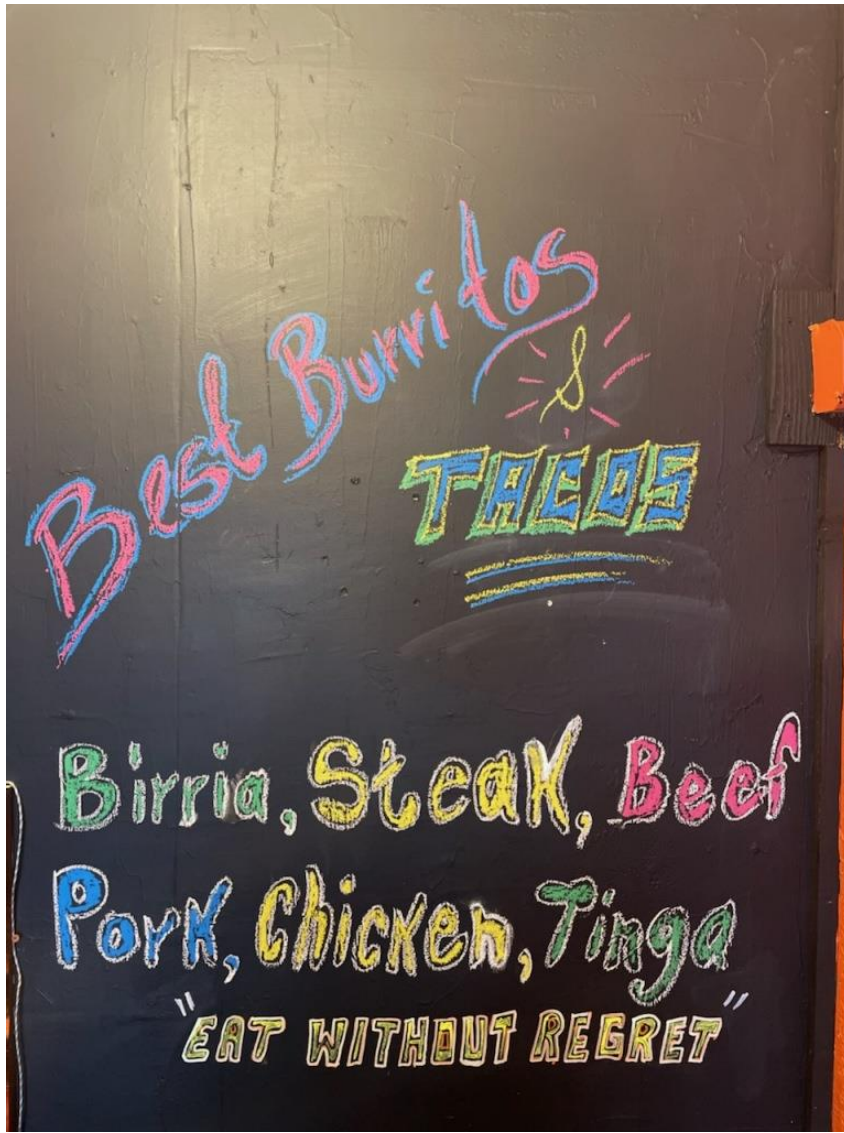 Best Burritos
&
TACOS
Birria, Steak, Beef
Pork, Chicken, Tinga
"EAT WITHOUT REGRET"